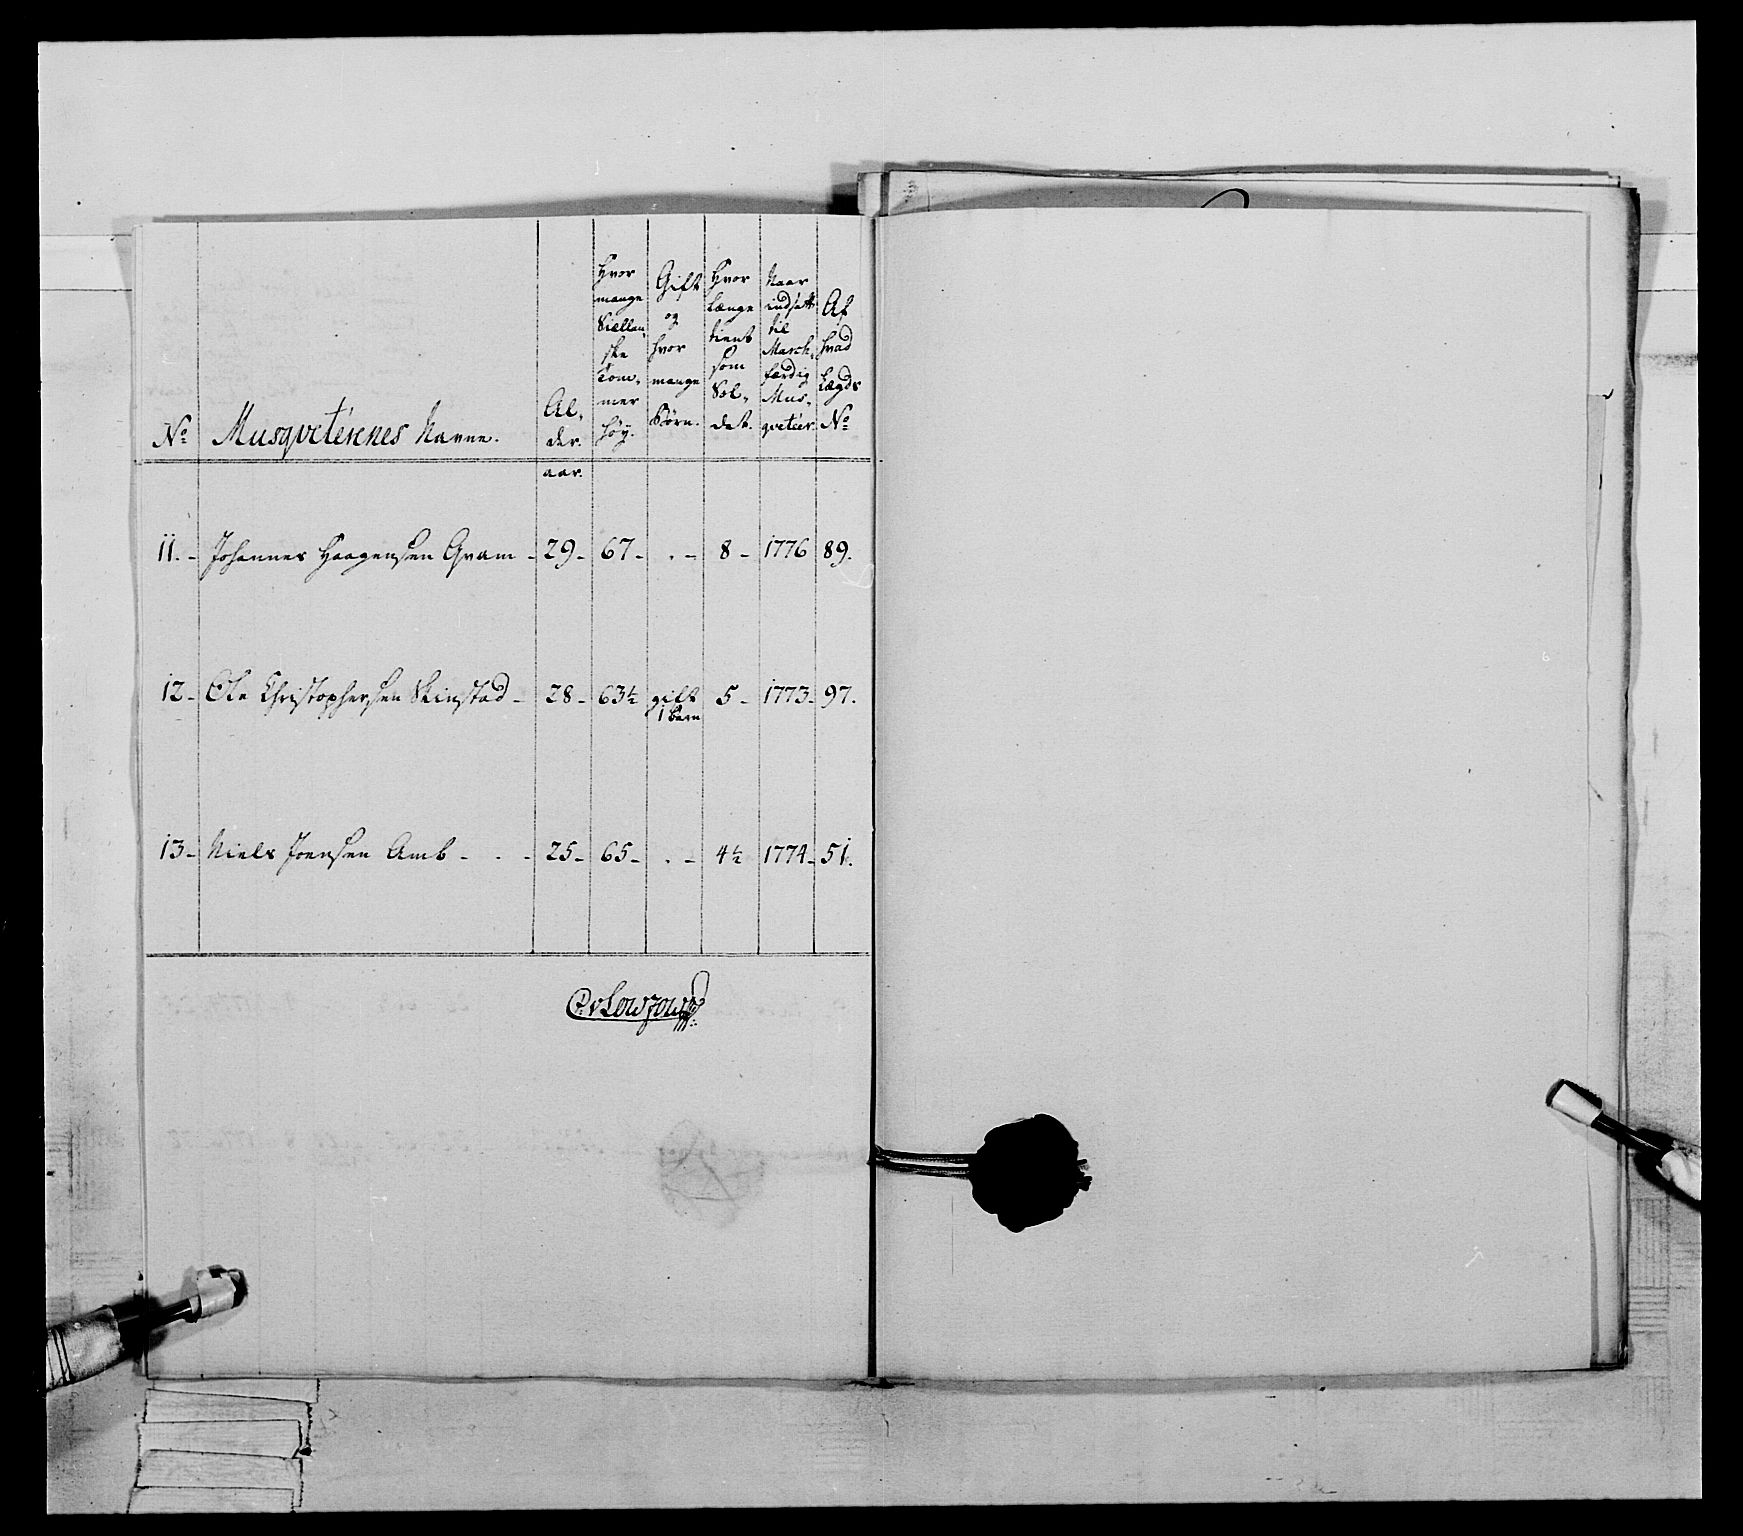 No Musqveterernes Navne. Al, der. Hvor mange Siællan, ske Tom, mer høy. Gift og hvor mange Børn. Hvor Længe tient som Sol, dat. Naar indsatt til March, færdig Mus, qveteer. Af hvad Lægds No
aar.
11. - Johannes Haagensen Gram - 29 - 67 - . - 8 - 1776 89.
12 - Ole Christophersen Skinstad - 28 - 63½ gift 1 barn 5 - 1773 - 97.
13 - Niels Joensen Amb - . - 25 - 65 - . - 4½ 1774 - 51.
C. v Lowzow